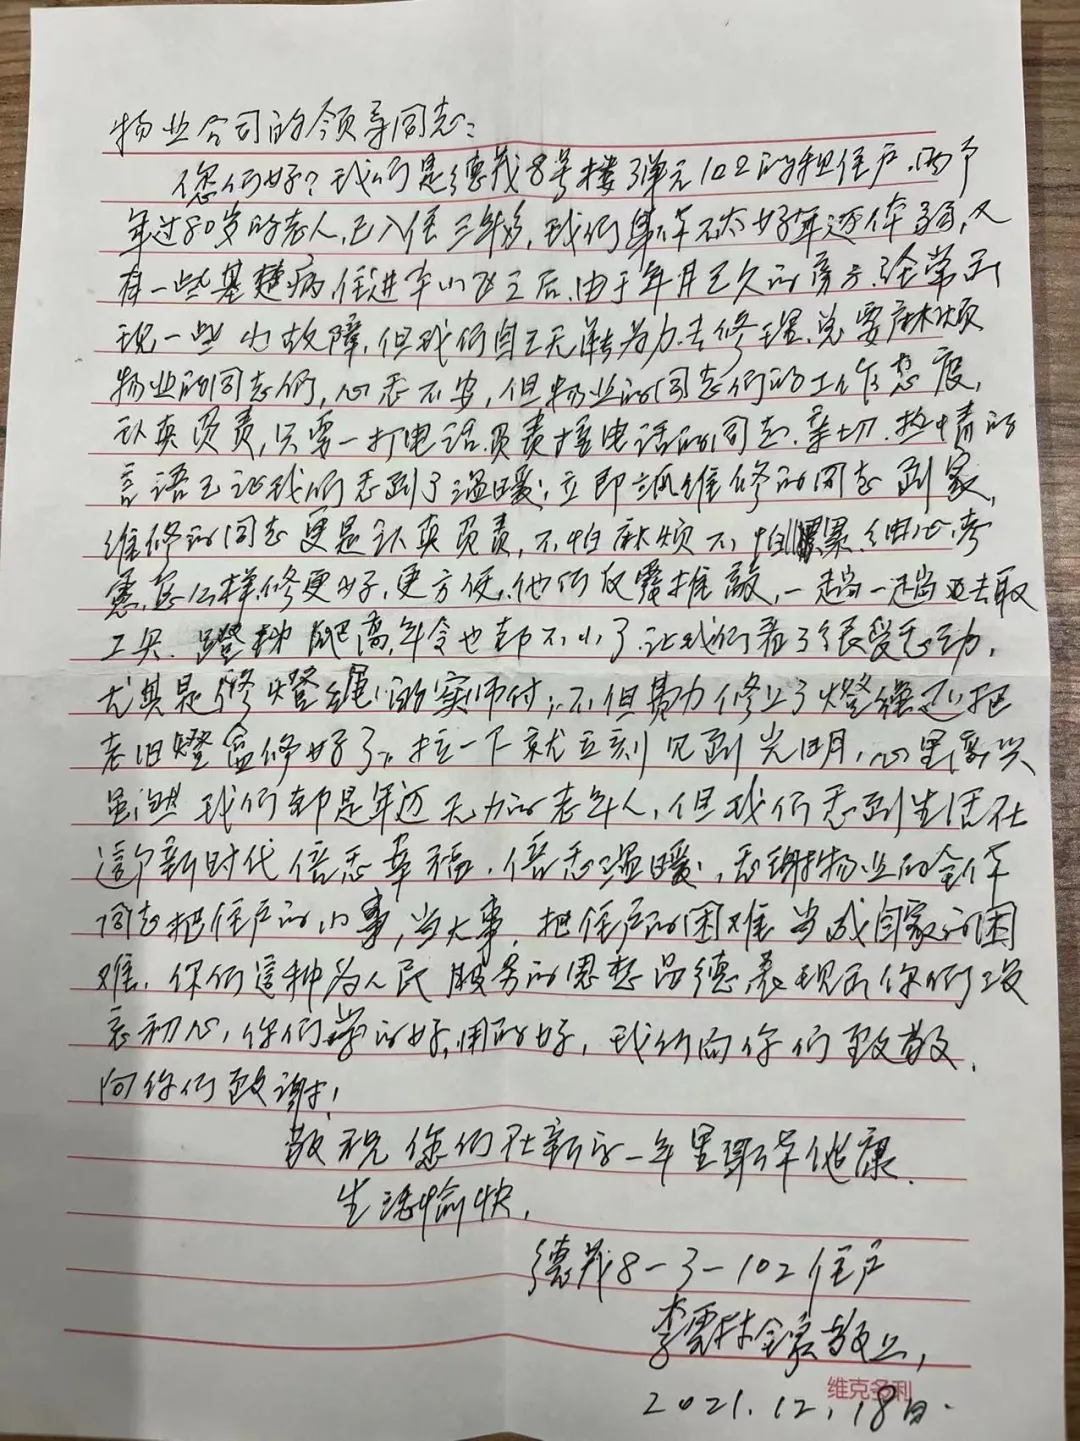 物业公司的领导同志：
您们好？我们是德茂8号楼3单元102的租住户，两个
年过80岁的老人，已入住三年多，我们身体不太好年迈体弱，又
有一些基礎病，住进本小区之后，由于年月已久的房产，经常出
现一些小故障，但我们自己无能为力去修理，总要麻烦
物业的同志们，心悉不安，但物业的同志们的工作态度，
认真负责，只要一打电话，负责接电话的同志，亲切，热情的
言语已让我们感到了温暖，立即派维修的同志到家，
维修的同志更是认真负责，不怕麻烦不怕累，细心考
虑，怎么样修更好，更方便，他们反覆推敲，一趟一趟回去取
工具，蹬梯爬高，年令也都不小了，让我们看了很受感动，
尤其是修燈绳的师付，不但努力修上了燈绳还把
老旧燈盒修好了，拉一下就立刻见到光明，心里高兴
虽然我们都是年迈无力的老年人，但我们感到生活在
這个新时代倍感幸福，倍感温暖，感謝物业的全体
同志把住户的小事，当大事，把住户的困难当成自家的困
难，你们這种为人民服务的思想品德表现出你们不
忘初心，你们学的好，用的好，我们向你们致敬，
向你们致谢！
敬祝您们在新的一年里身体健康，
生活愉快，
德茂8-3-102住户
李雲林全家敬上，
维克多利
2021.12.18日.